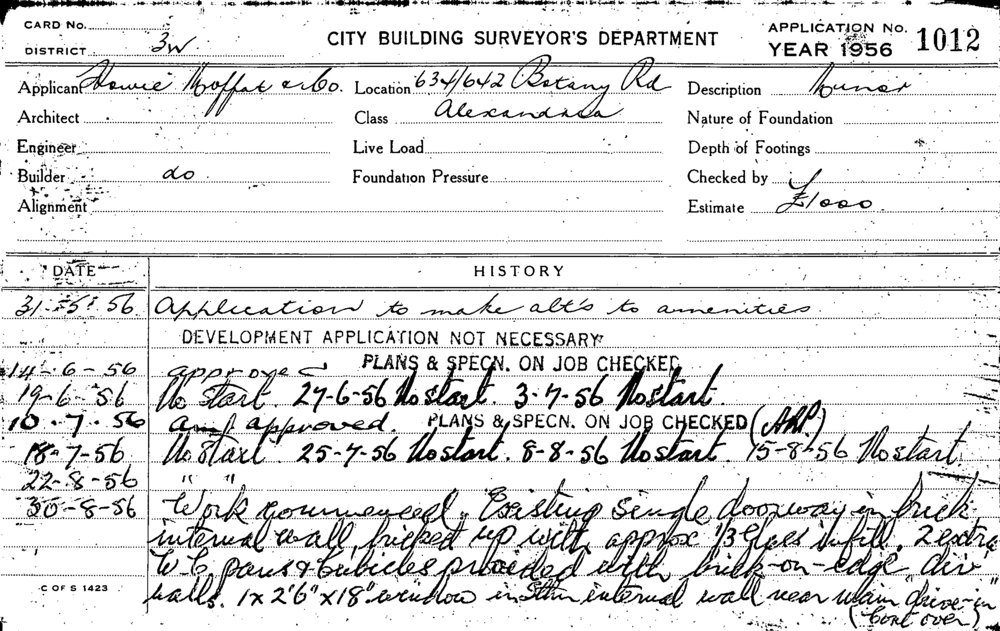 CARD No.
DISTRICT 3W
CITY BUILDING SURVEYOR'S DEPARTMENT
APPLICATION No. 1012
YEAR 1956
Applicant Howie Moffat & Co. Location 634/642 Botany Rd Description Minor
Architect Class Alexandria Nature of Foundation
Engineer Live Load Depth of Footings
Builder do Foundation Pressure Checked by
Alignment Estimate £1000
DATE HISTORY
31-5-56 Application to make alt's to amenities
DEVELOPMENT APPLICATION NOT NECESSARY
14-6-56 approved PLANS & SPECN. ON JOB CHECKED
19-6-56 No start. 27-6-56 No start. 3-7-56 No start.
10-7-56 approved. PLANS & SPECN. ON JOB CHECKED
18-7-56 No start. 25-7-56 No start. 8-8-56 No start. 15-8-56 No start
22-8-56 " "
30-8-56 Work commenced. Existing single doorway in brick
internal wall bricked up with approx 1/3 glass infill. 2 extra
W.C. pans & cubicles provided with brick-on-edge div
walls. 1 x 2'6" x 18" window in Sthn internal wall near main "drive-in"
(Cont over)
C OF S 1423